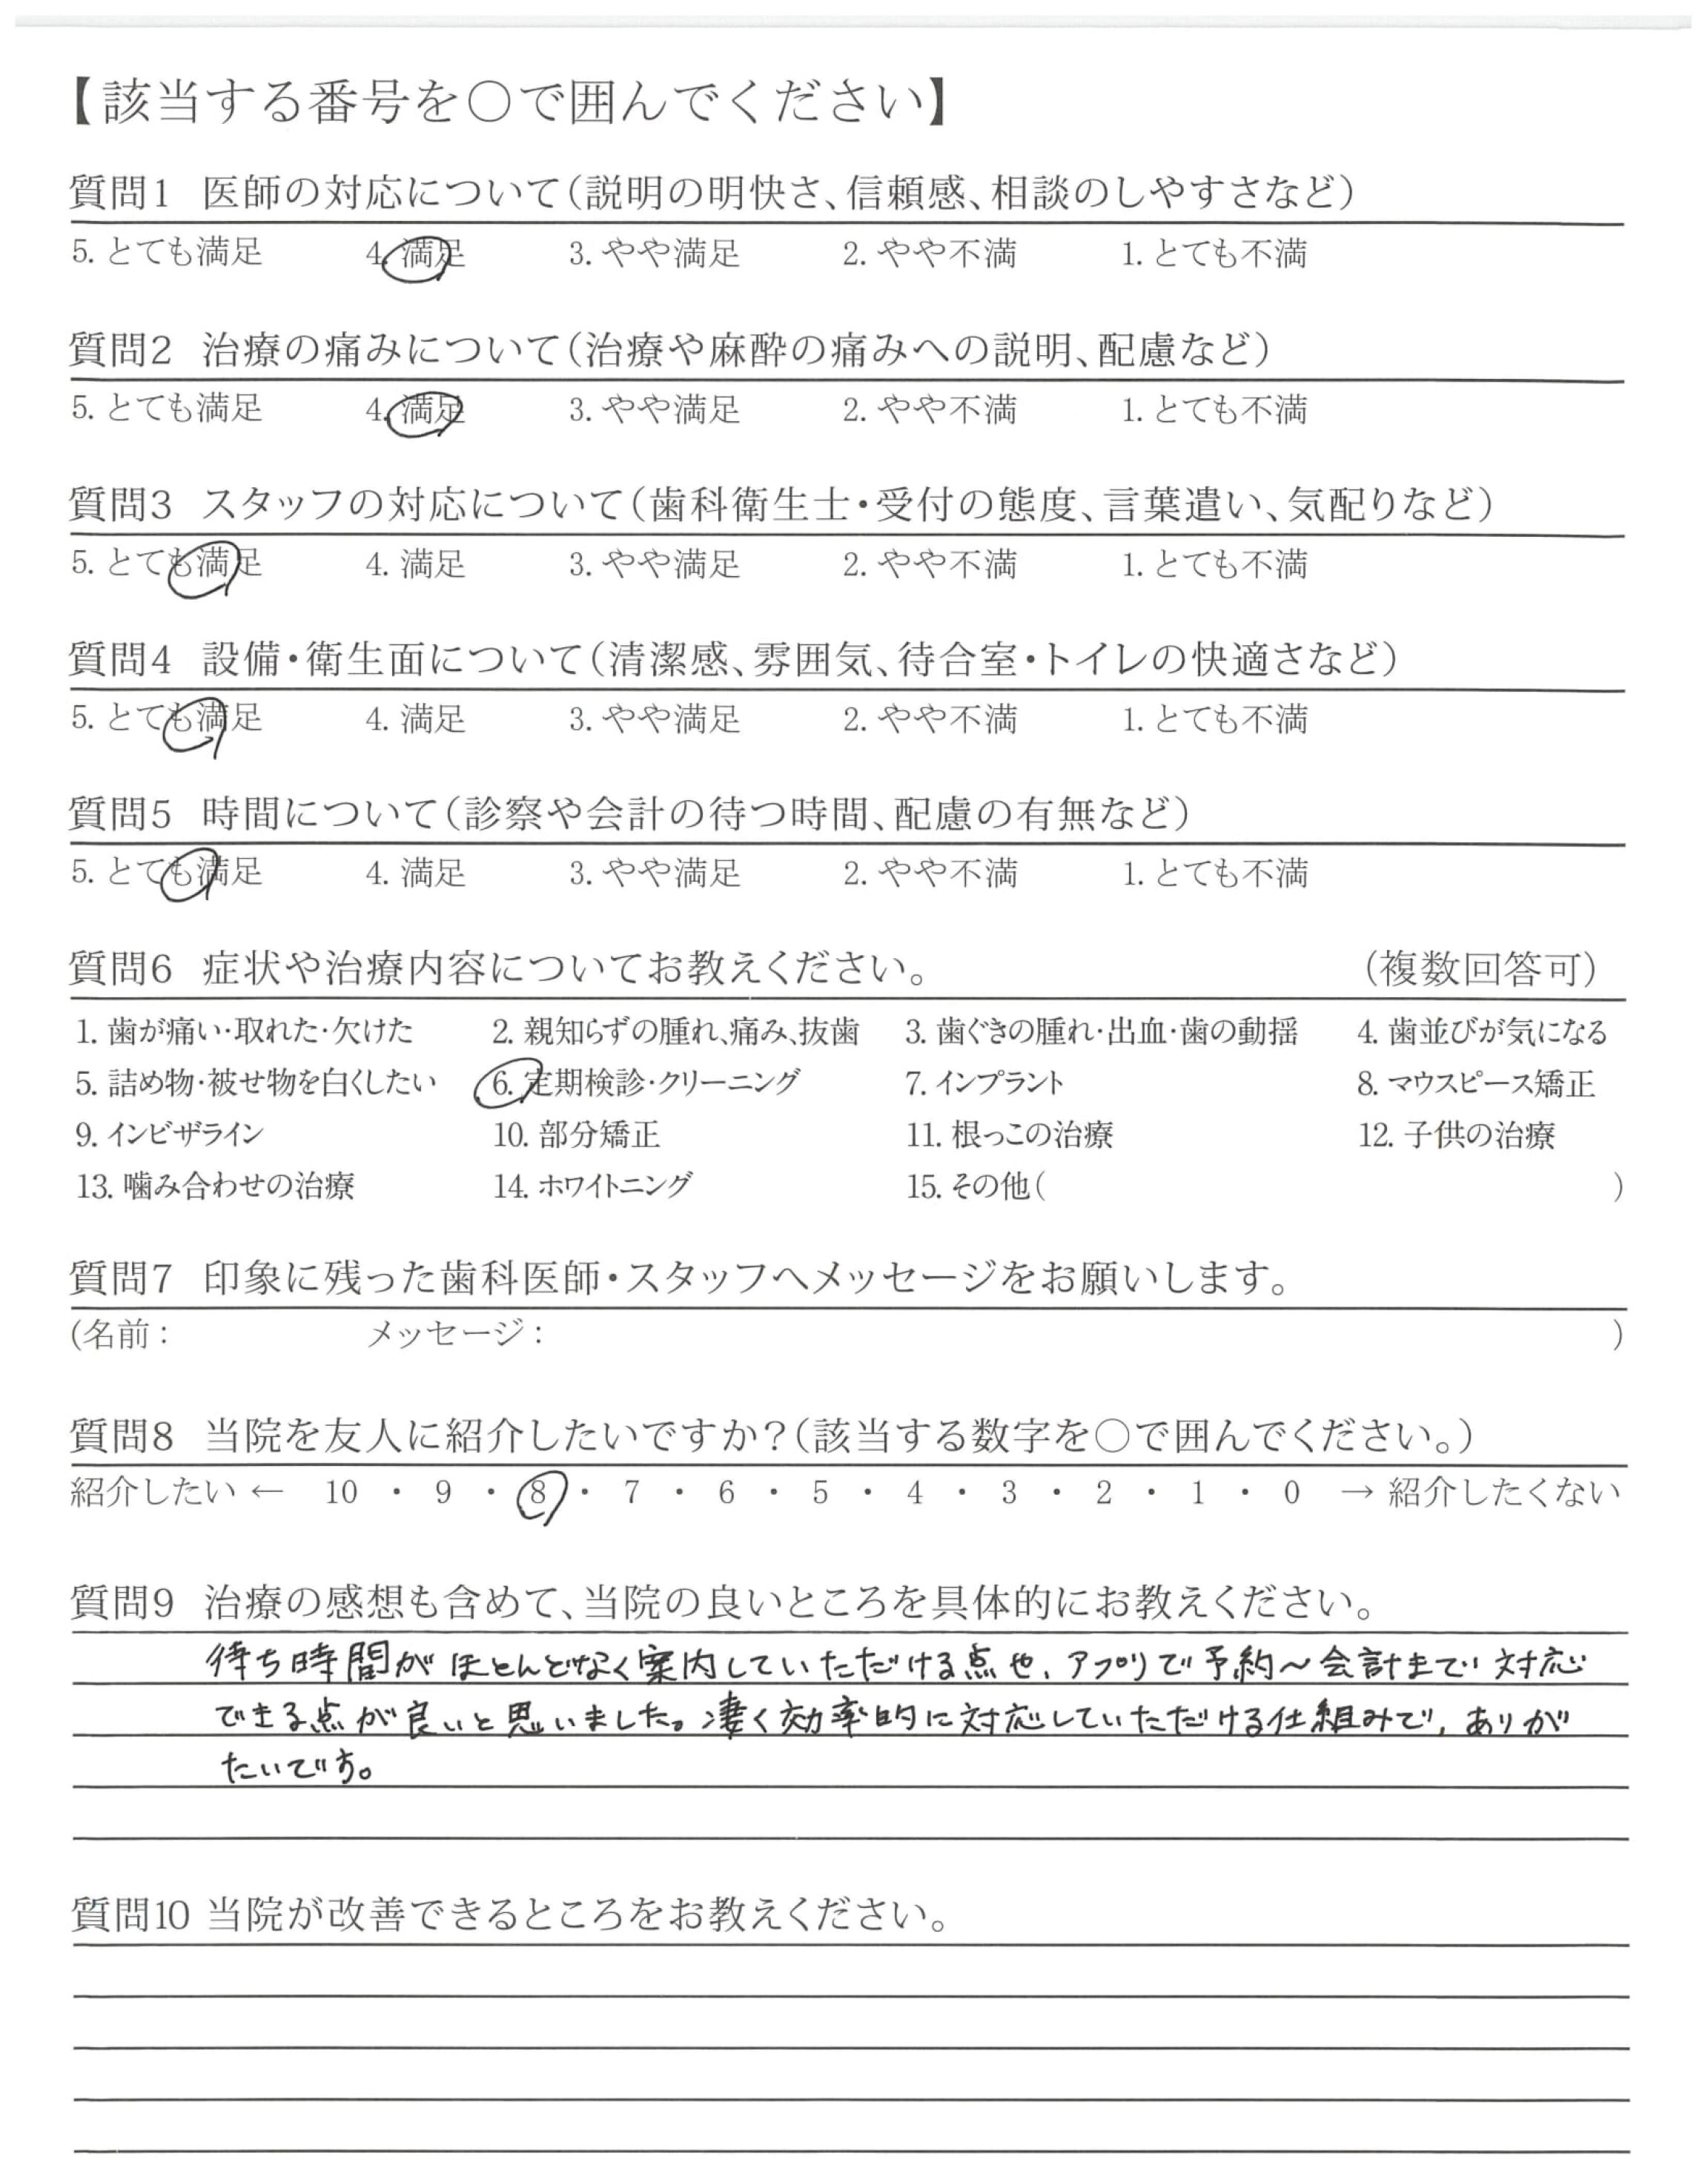 【該当する番号を○で囲んでください】
質問1 医師の対応について(説明の明快さ、信頼感、相談のしやすさなど)
5. とても満足 4. 満足 3. やや満足 2. やや不満 1. とても不満
質問2 治療の痛みについて(治療や麻酔の痛みへの説明、配慮など)
5. とても満足 4. 満足 3. やや満足 2. やや不満 1. とても不満
質問3 スタッフの対応について(歯科衛生士・受付の態度、言葉遣い、気配りなど)
5. とても満足 4. 満足 3. やや満足 2. やや不満 1. とても不満
質問4 設備・衛生面について(清潔感、雰囲気、待合室・トイレの快適さなど)
5. とても満足 4. 満足 3. やや満足 2. やや不満 1. とても不満
質問5 時間について(診察や会計の待つ時間、配慮の有無など)
5. とても満足 4. 満足 3. やや満足 2. やや不満 1. とても不満
質問6 症状や治療内容についてお教えください。 (複数回答可)
1. 歯が痛い・取れた・欠けた 2. 親知らずの腫れ、痛み、抜歯 3. 歯ぐきの腫れ・出血・歯の動揺 4. 歯並びが気になる
5. 詰め物・被せ物を白くしたい 6. 定期検診・クリーニング 7. インプラント 8. マウスピース矯正
9. インビザライン 10. 部分矯正 11. 根っこの治療 12. 子供の治療
13. 噛み合わせの治療 14. ホワイトニング 15. その他( )
質問7 印象に残った歯科医師・スタッフへメッセージをお願いします。
(名前: メッセージ: )
質問8 当院を友人に紹介したいですか?(該当する数字を○で囲んでください。)
紹介したい ← 10 ・ 9 ・ 8 ・ 7 ・ 6 ・ 5 ・ 4 ・ 3 ・ 2 ・ 1 ・ 0 → 紹介したくない
質問9 治療の感想も含めて、当院の良いところを具体的にお教えください。
待ち時間がほとんどなく案内していただける点や、アプリで予約~会計まで対応
できる点が良いと思いました。凄く効率的に対応していただける仕組みで、ありが
たいです。
質問10 当院が改善できるところをお教えください。